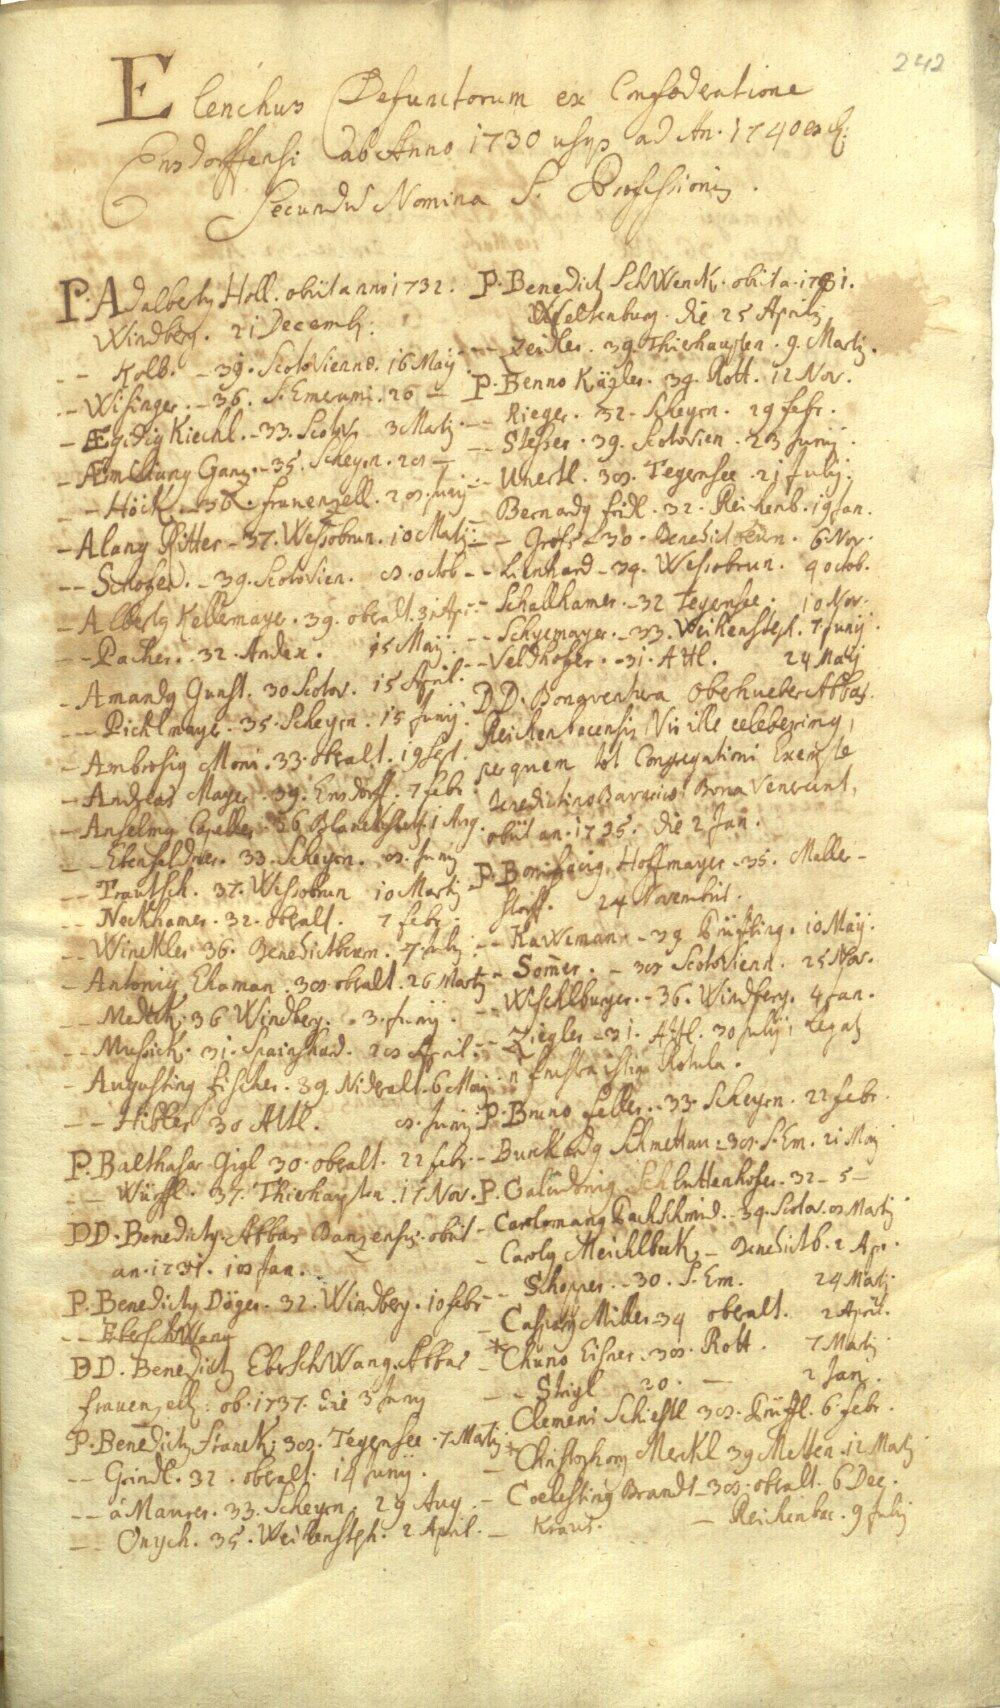 242
Elenchus Defunctorum ex Confoederatione
Ensdorffensi ab Anno 1730 usq ad An. 1740
Secundu Nomina S. Professionis.
P. Adalberty Holl. obiit anno 1732.
Windberg. 21 Decemb.
-- Kolb. - 39. Scotovienno. 16 Maij
-- Wisinger. - 36. S. Emerami. 26 -
- Ægidiy Kiechl. - 33. Scotov 3 Martij
- Æmiliany Ganz. - 35. Scheyrn.
-- Höck. - 36. frunenzell. Junij
- Alany Ritter - 37. Wessobrun. 10 Martij
-- Schofer. - 39. Scotovien. octob
- Alberty Kellermayer. 39. oberalt.
-- Pacher. 32. Andex. 15 Maij
- Amandy Gunst. 30 Scotov. 15 April.
-- Pichlmayr. 35. Scheyrn. 15 Junij.
- Ambrosiy Moni. 33. oberalt. 19 Sept.
- Andreas Mayer. 39. Ensdorff. 7 febr
- Anselmy Capeller 36 1 Aug.
-- Ebenfeldner. 33. Scheyrn. Junij
-- Trautsch. 37. Wessobrun 10 Martij
-- Neckhamer. 32. oberalt. 7 febr.
-- Winckler 36. Benedictbeurn. 7 July
- Antoniy Ehaman. 38 oberalt. 26 Martij
-- 36 Windberg. 3. Junij.
-- Mussick. 31. Spainshard. 28 April.
- Augustiny fischer. 39. Nideralt. 6 Maij
-- Hibler 30 Attl. Junij
P. Balthasar Gigl 30. oberalt. 22 febr
-- Würffl. 37. Thierhaupten. 17 Nov.
DD. Benedicty Abbas Banzensis. obiit
an. 1731. 18 Jan.
P. Benedicty Döger. 32. Windberg. 10 febr
-- EberschWang
DD. Benedicty EberSchWang. Abbas
frauenzell. ob. 1737. die 3 Juny
P. Benedicty Franck. 38. Tegernsee. 7 Martij
-- Grindl. 32. oberalt. 14 Junij.
-- à Maurer. 33. Scheyrn. 29 Aug.
-- Onych. 35. Weihensteph. 2 April.
P. Benedicty SchWenck. obiit a. 1731.
Weltenburg. die 25 Aprilis
-- Zeidler. 39. Thierhaupten. 9. Martij.
P. Benno Kögler. 39. Rott. 12 Nov.
-- Rieger. 32. Scheyrn. 29 febr.
-- Stesser. 39. Scotovien. 23 Junij.
-- Unertl. 38. Tegernsee. 21 Julij.
Bernardy fridl. 32. Reichenb. 19 Jan.
-- 30. Benedictbeurn. 6 Nov.
-- Lienhard - 39. Wessobrun. 9 octob.
-- Schallhamer. - 32 Tegernsee. 10 Nov.
-- Schyemayer. - 33. Weihensteph. 7 Junij
-- Veldhofer. - 31. Attl. 24 Maij
DD. Bonaventura Oberhueber Abbas
Reichenbacensis, Vir ille celeberrimy,
per quem tot Congregationi Exemptae
Benedictino Bavaricae Bona Venerunt,
obiit an. 1735. die 2 Jan.
P. Bonifaciy Hoffmayer - 35. Maller-
storff. 24 Novembris.
-- KaWeman - 39 Prüfling. 10 Maij.
-- Som̄er. - 38 Scotovienn. 25 Nov.
-- Wischlburger. - 36. Windberg. 4 Jan.
-- Ziegler - 31. Attl. 30 Julij,
Rotula.
P. Bruno feller. - 33. Scheyrn. 22 febr.
- Burckardy Schmettau - 38. S. Em. 21 Maij
P. Schluttenhofer. 32 - 5 -
- Carolomany Packschmid. - 39. Scotov. 8 Martij
- Caroly Meichlbeck - Benedictb. 2 Apr.
-- Schopper. - 30. S. Em. 24 Martij.
- Caspary Miller - 34 oberalt. 2 April.
* Chuno Eisner. 38. Rott. 7 Martij
-- Strigl 30. - 2 Jan.
- Clemens Schiestl 38. Prüfl. 6 febr.
-* Christophory Merckl 39 Metten. 12 Martij
- Coelestiny Brandt - 38. oberalt. 6 Dec.
- Kraus. - Reichenbac. 9 July